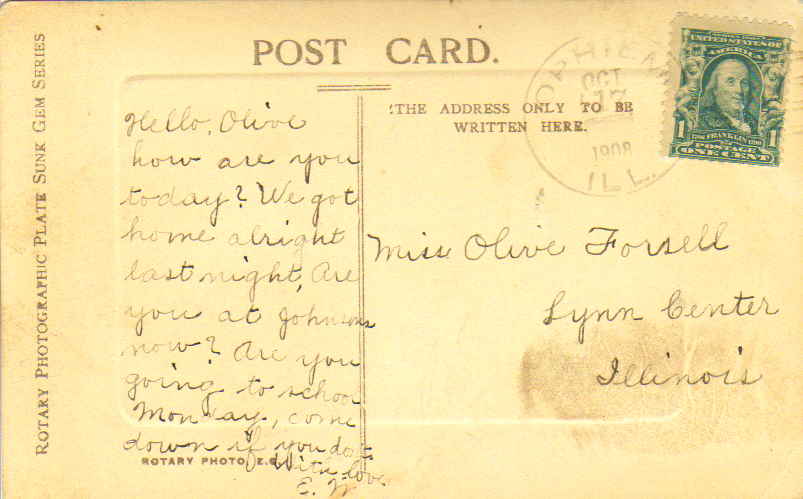 ROTARY PHOTOGRAPHIC PLATE SUNK GEM SERIES
POST CARD.
THE ADDRESS ONLY TO BE
WRITTEN HERE.
OPHIEM
OCT
17
1908
ILL.
UNITED STATES OF
AMERICA
1 FRANKLIN 1
POSTAGE
ONE CENT
Hello, Olive
how are you
today? We got
home alright
last night, Are
you at Johnsons
now? Are you
going to school
Monday, come
down if you don't
With love
E. W
Miss Olive Forsell
Lynn Center
Illinois
ROTARY PHOTO, E.C.